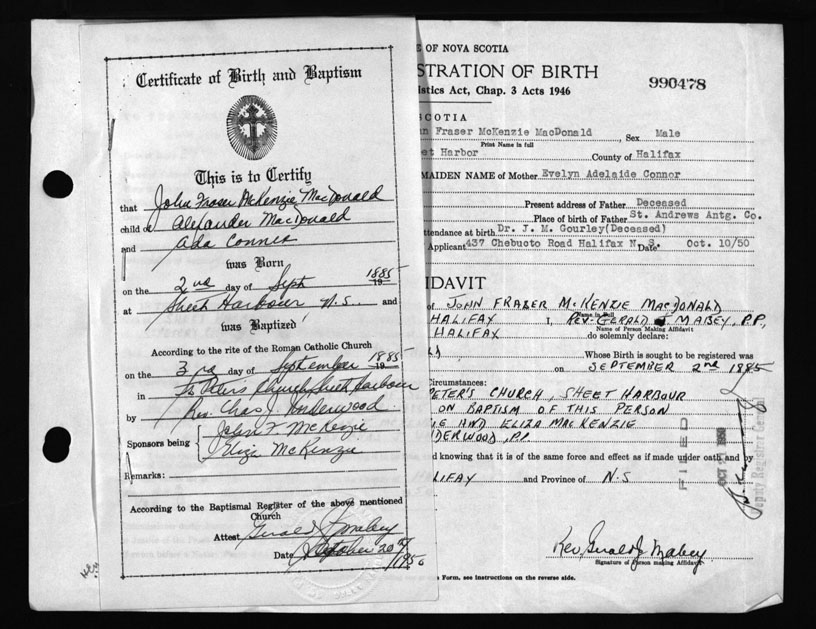 Certificate of Birth and Baptism
This is to Certify
that John Fraser McKenzie MacDonald
child of Alexander MacDonald
and Ada Conner
was Born
on the 2nd day of Sept 1885 19
at Sheet Harbour N.S. and
was Baptized
According to the rite of the Roman Catholic Church
on the 3rd day of September 1885 19
in St Peters Church, Sheet Harbour
by Rev. Chas J. Underwood.
Sponsors being John F McKenzie
Eliza McKenzie
Remarks:
According to the Baptismal Register of the above mentioned
Church
Attest Gerald J Mabey
Date October 20th 1950
E OF NOVA SCOTIA
STRATION OF BIRTH
990478
istics Act, Chap. 3 Acts 1946
SCOTIA
hn Fraser McKenzie MacDonald, Sex Male
Print Name in full
et Harbor County of Halifax
MAIDEN NAME of Mother Evelyn Adelaide Connor
Present address of Father Deceased
Place of birth of Father St. Andrews Antg. Co.
ttendance at birth Dr. J. M. Gourley(Deceased)
Applicant 437 Chebucto Road Halifax N. S. Date Oct. 10/50
FIDAVIT
of JOHN FRASER McKENZIE MACDONALD
Name in full
HALIFAX I, REV. GERALD J MABEY, P.P.,
Name of Person Making Affidavit
HALIFAX do solemnly declare:
Whose Birth is sought to be registered was
on SEPTEMBER 2nd 1885
Circumstances:
PETER'S CHURCH, SHEET HARBOUR
ON BAPTISM OF THIS PERSON
IG AND ELIZA MACKENZIE
DERWOOD, P.P.
d knowing that it is of the same force and effect as if made under oath and by
LIFAX and Province of N.S
FILED
OCT 1950
Deputy Registrar General
Rev. Gerald J Mabey
Signature of Person making Affidavit
s Form, see instructions on the reverse side.